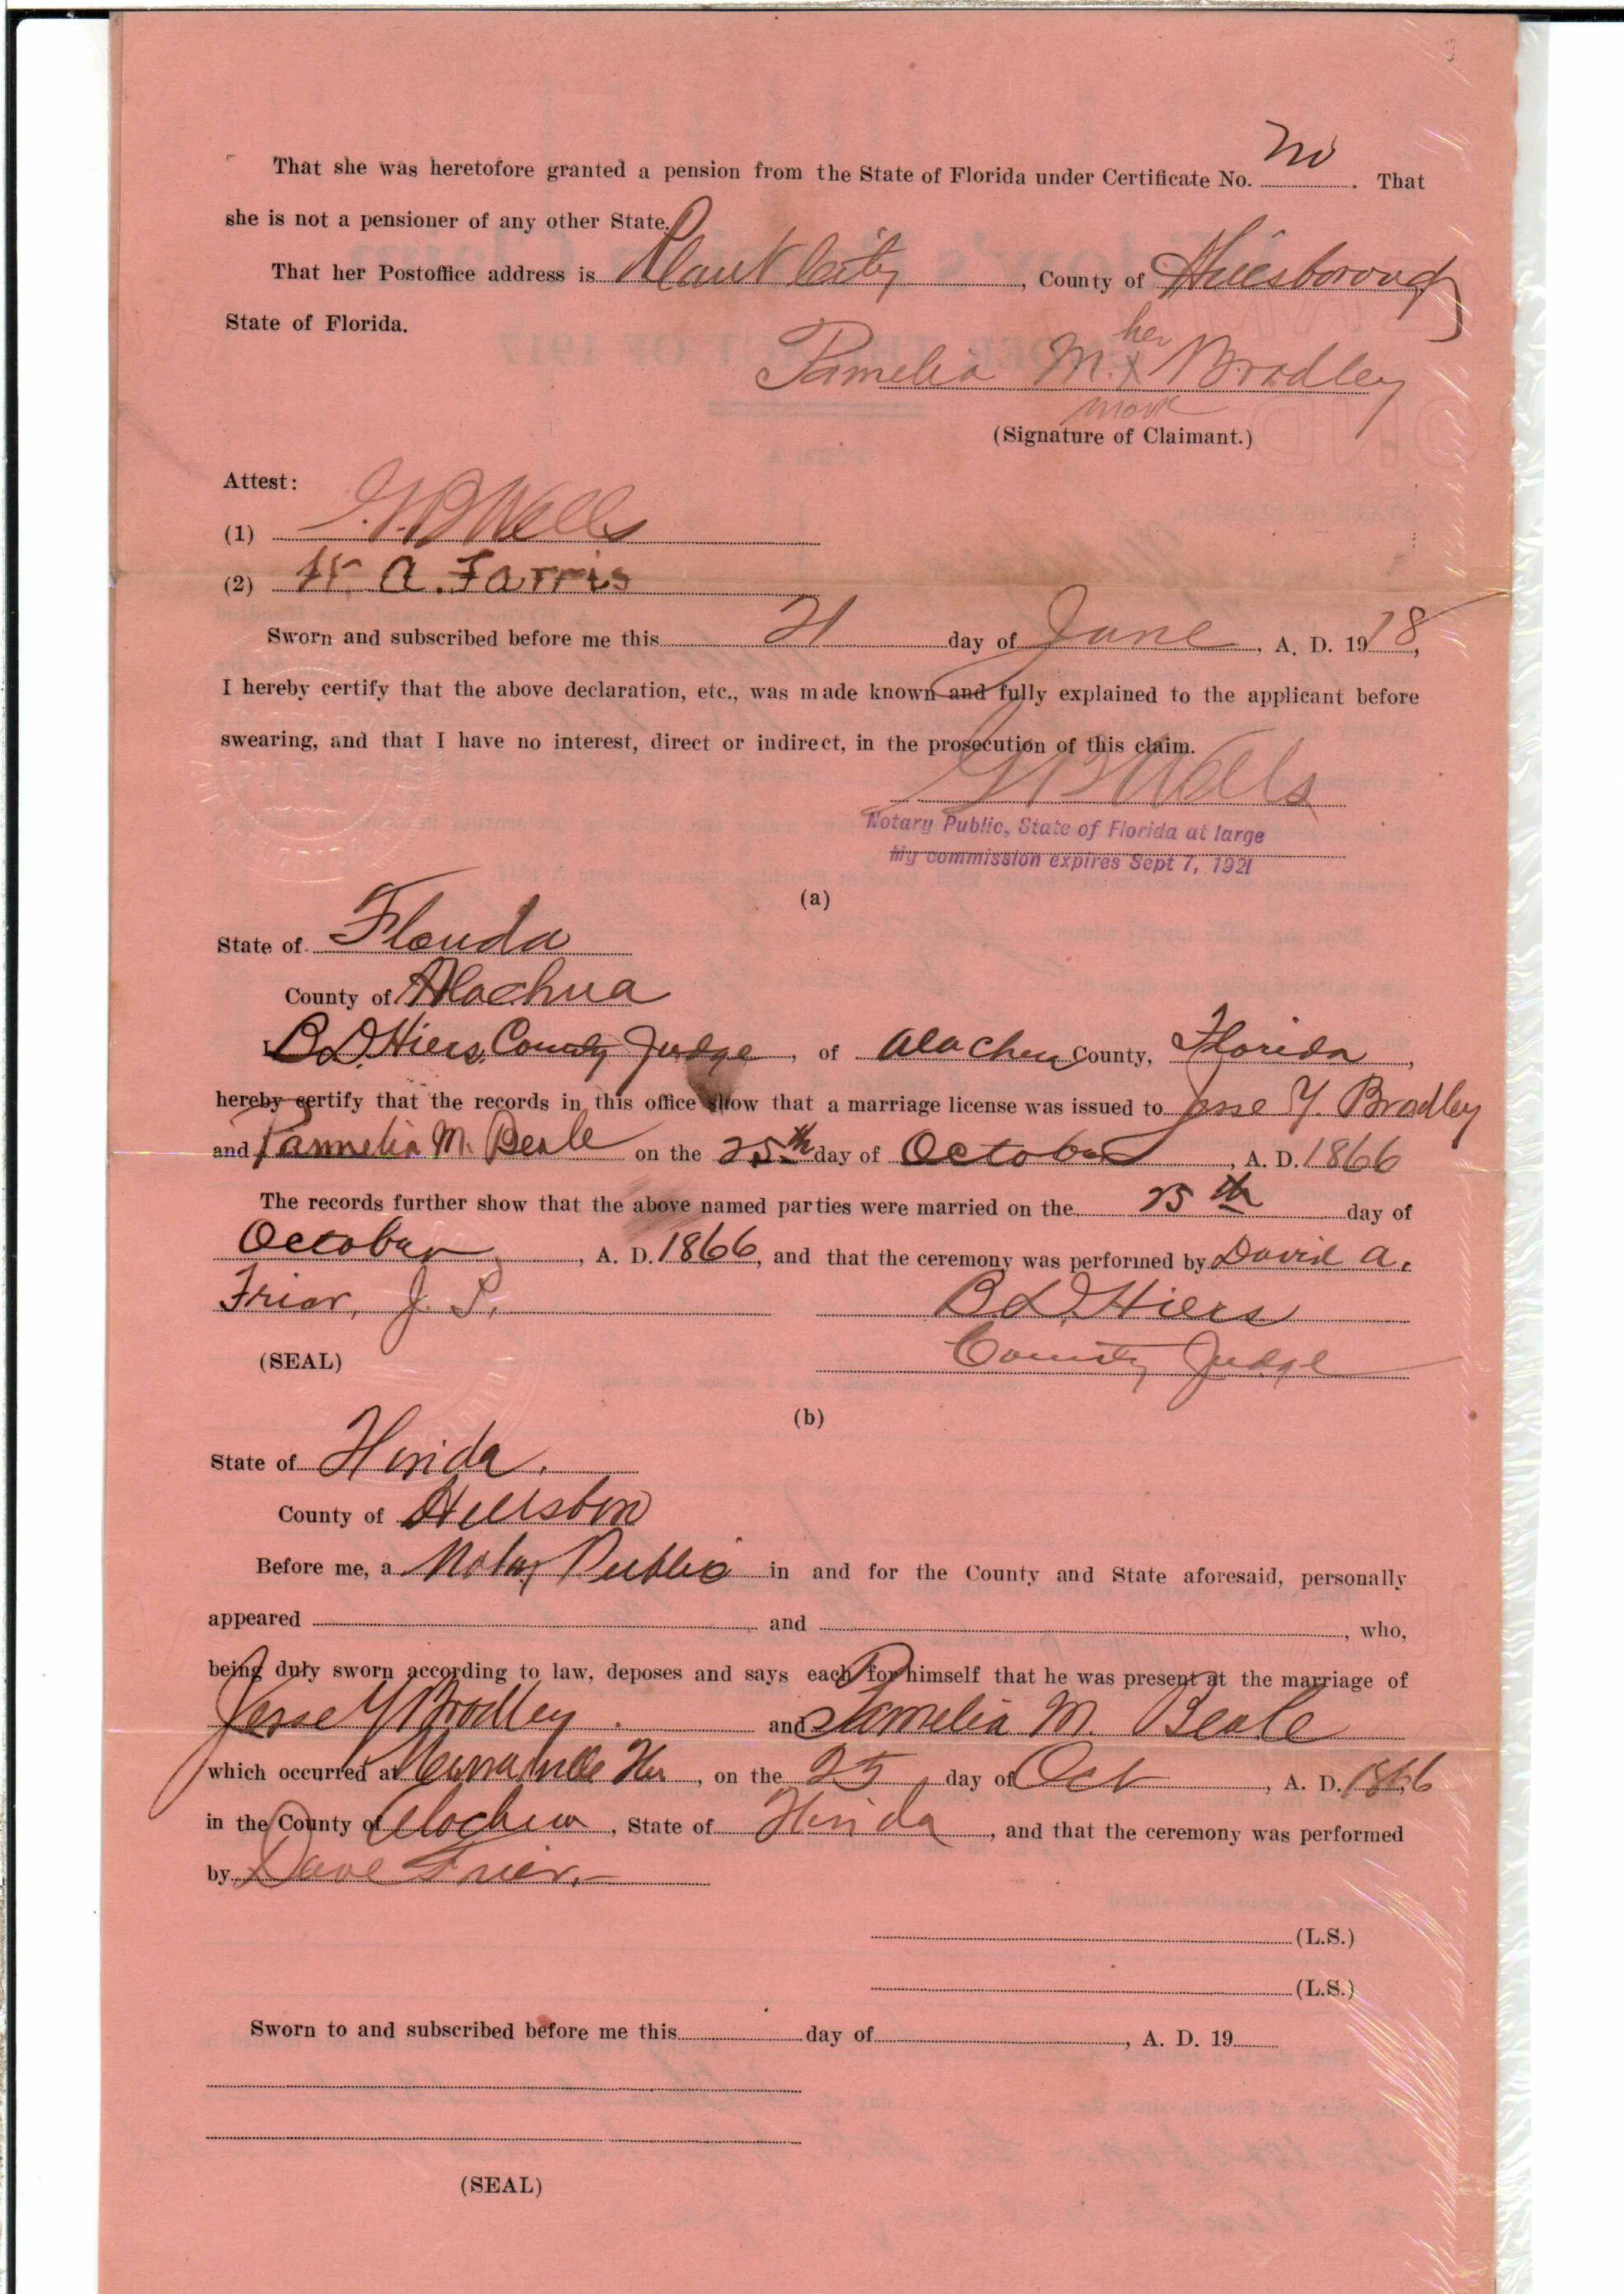 That she was heretofore granted a pension from the State of Florida under Certificate No. no. That
she is not a pensioner of any other State.
That her Postoffice address is Plant City, County of Hillsborough
State of Florida.
her
Pamelia M. X Bradley
mark
(Signature of Claimant.)
Attest:
(1) G. B Wells
(2) A. Farris
Sworn and subscribed before me this 21 day of June, A. D. 1918,
I hereby certify that the above declaration, etc., was made known and fully explained to the applicant before
swearing, and that I have no interest, direct or indirect, in the prosecution of this claim.
G B Wells
Notary Public, State of Florida at large
My commission expires Sept 7, 1921
(a)
State of Florida
County of Alachua
I, B. D. Hiers, County Judge, of Alachua County, Florida,
hereby certify that the records in this office show that a marriage license was issued to Jesse Y. Bradley
and Pammelia M. Beale on the 25th day of October, A. D. 1866
The records further show that the above named parties were married on the 25th day of
October, A. D. 1866, and that the ceremony was performed by David A.
Friar, J. P. B. D. Hiers
(SEAL) County Judge
(b)
State of Florida.
County of Hillsboro
Before me, a Notary Public in and for the County and State aforesaid, personally
appeared and , who,
being duly sworn according to law, deposes and says each for himself that he was present at the marriage of
Jesse Y Bradley. and Pamelia M. Beale
which occurred at , on the 25 day of Oct, A. D. 1866
in the County of Alachua, State of Florida, and that the ceremony was performed
by Dave Frier.
(L.S.)
(L.S.)
Sworn to and subscribed before me this day of , A. D. 19
(SEAL)